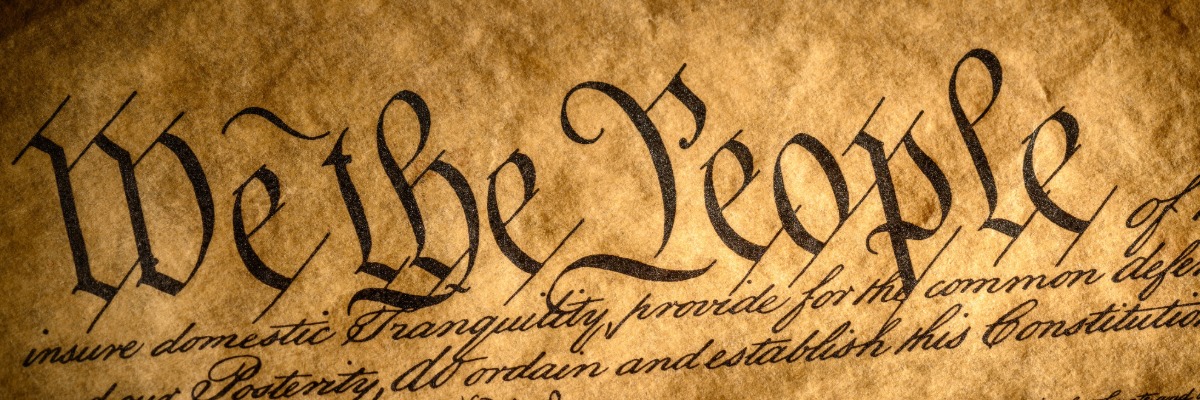 We the People of
insure domestic Tranquility, provide for the common defe
our Posterity, do ordain and establish this Constitutio